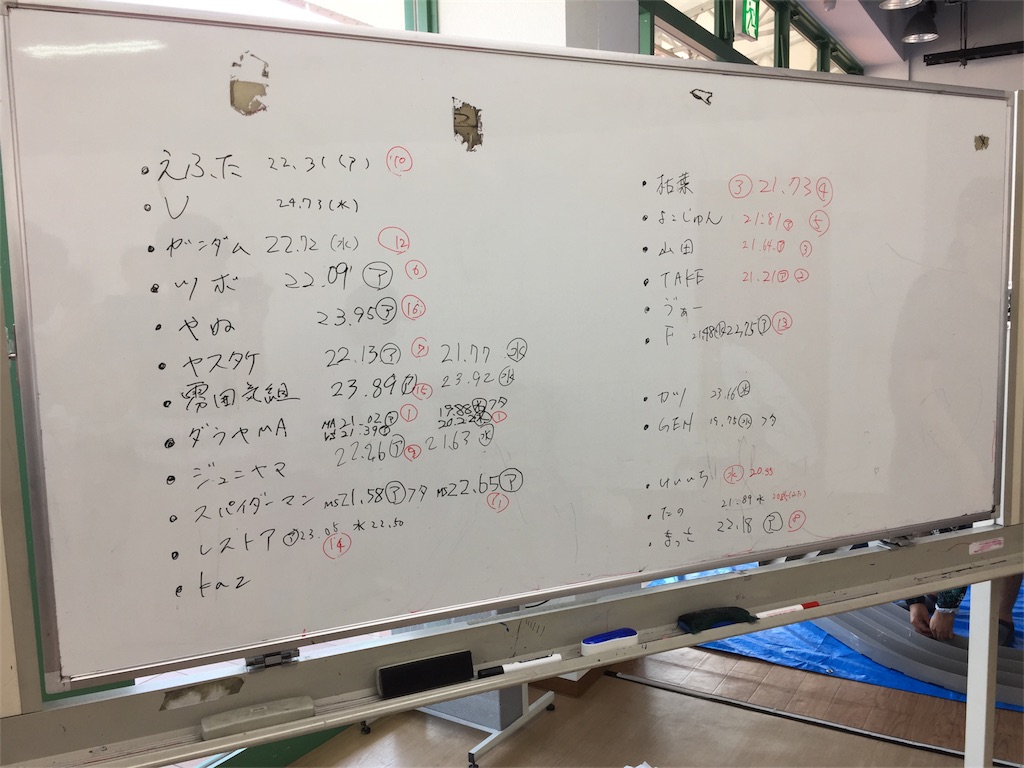 ・えふた 22.31(ア) ⑩
・U 24.73(水)
・ガンダム 22.72(水) ⑫
・ツボ 22.09 ㋐ ⑥
・やぬ 23.95㋐ ⑯
・ヤスタケ 22.13㋐ ⑦ 21.77 ㊌
・雰囲気組 23.89㋐ ⑮ 23.92 ㊌
・ダラヤMA MA 21.02㋐ ① 19.88㊌フタ
21.39㋐ 20.22㊌ ①
・ジュニヤマ 22.26㋐ ⑨ 21.63 ㊌
・スパイダーマン MS21.58㋐フタ MS22.65㋐ ⑪
・レストア ㋐23.05 水 22.50 ⑭
・kaz
・拓葉 ③ 21.73 ④
・よこじゅん 21.81㋐ ⑤
・山田 21.64㋐ ③
・TAKE 21.21㋐ ②
・ゔぁー
・F 21.98㊌ 22.75㋐ ⑬
・カツ 23.16㊌
・GEN 19.75㊌ フタ
・けいいち!! ㊌ 20.55
・たの 21.89 水
・まっさ 22.18 ㋐ ⑧